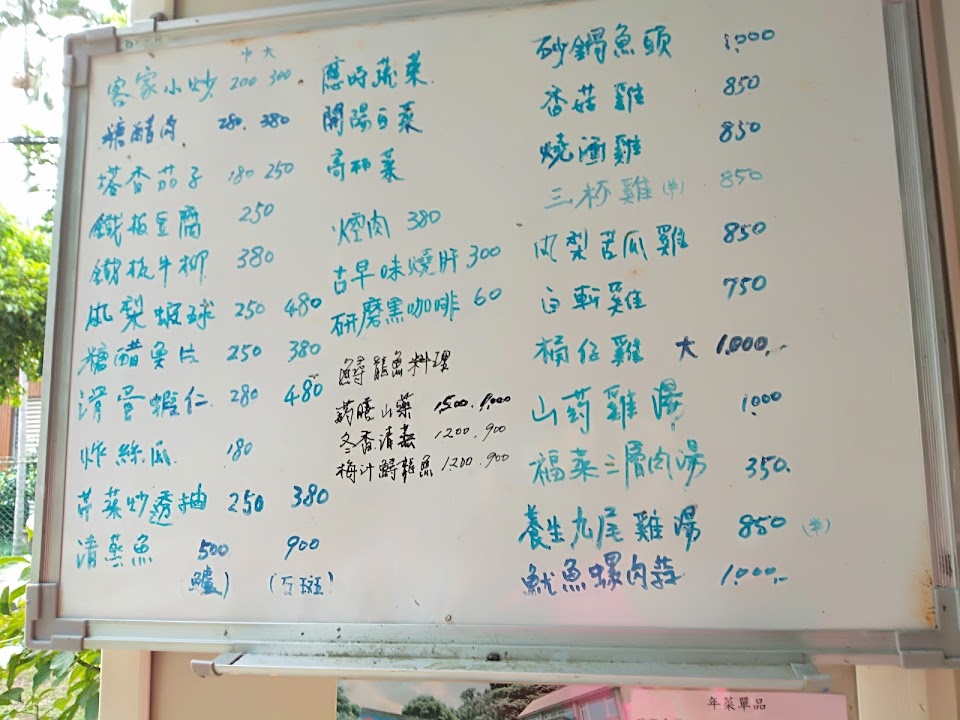 中 大
客家小炒 200 300
糖醋肉 280. 380
塔香茄子 180 250
鐵板豆腐 250
鐵板牛柳 380
凤梨蝦球 250 480
糖醋魚片 250 380
滑蛋蝦仁 280 480
炸絲瓜 180
芹菜炒透抽 250 380
清蒸魚 500 900
(鱸) (石斑)
應時蔬菜
開陽白菜
高麗菜
焢肉 380
古早味燒肝 300
研磨黑咖啡 60
鱘龍魚料理
藥膳山藥 1500. 1,000
冬香清蒸 1200. 900
梅汁鱘龍魚 1200. 900
砂鍋魚頭 1,000
香菇雞 850
燒酒雞 850
三杯雞(半) 850
凤梨苦瓜雞 850
白斬雞 750
桶仔雞 大 1,000.-
山药雞湯 1000
福菜三層肉湯 350.
養生九尾雞湯 850 (半)
魷魚螺肉蒜 1,000.-
年菜單品